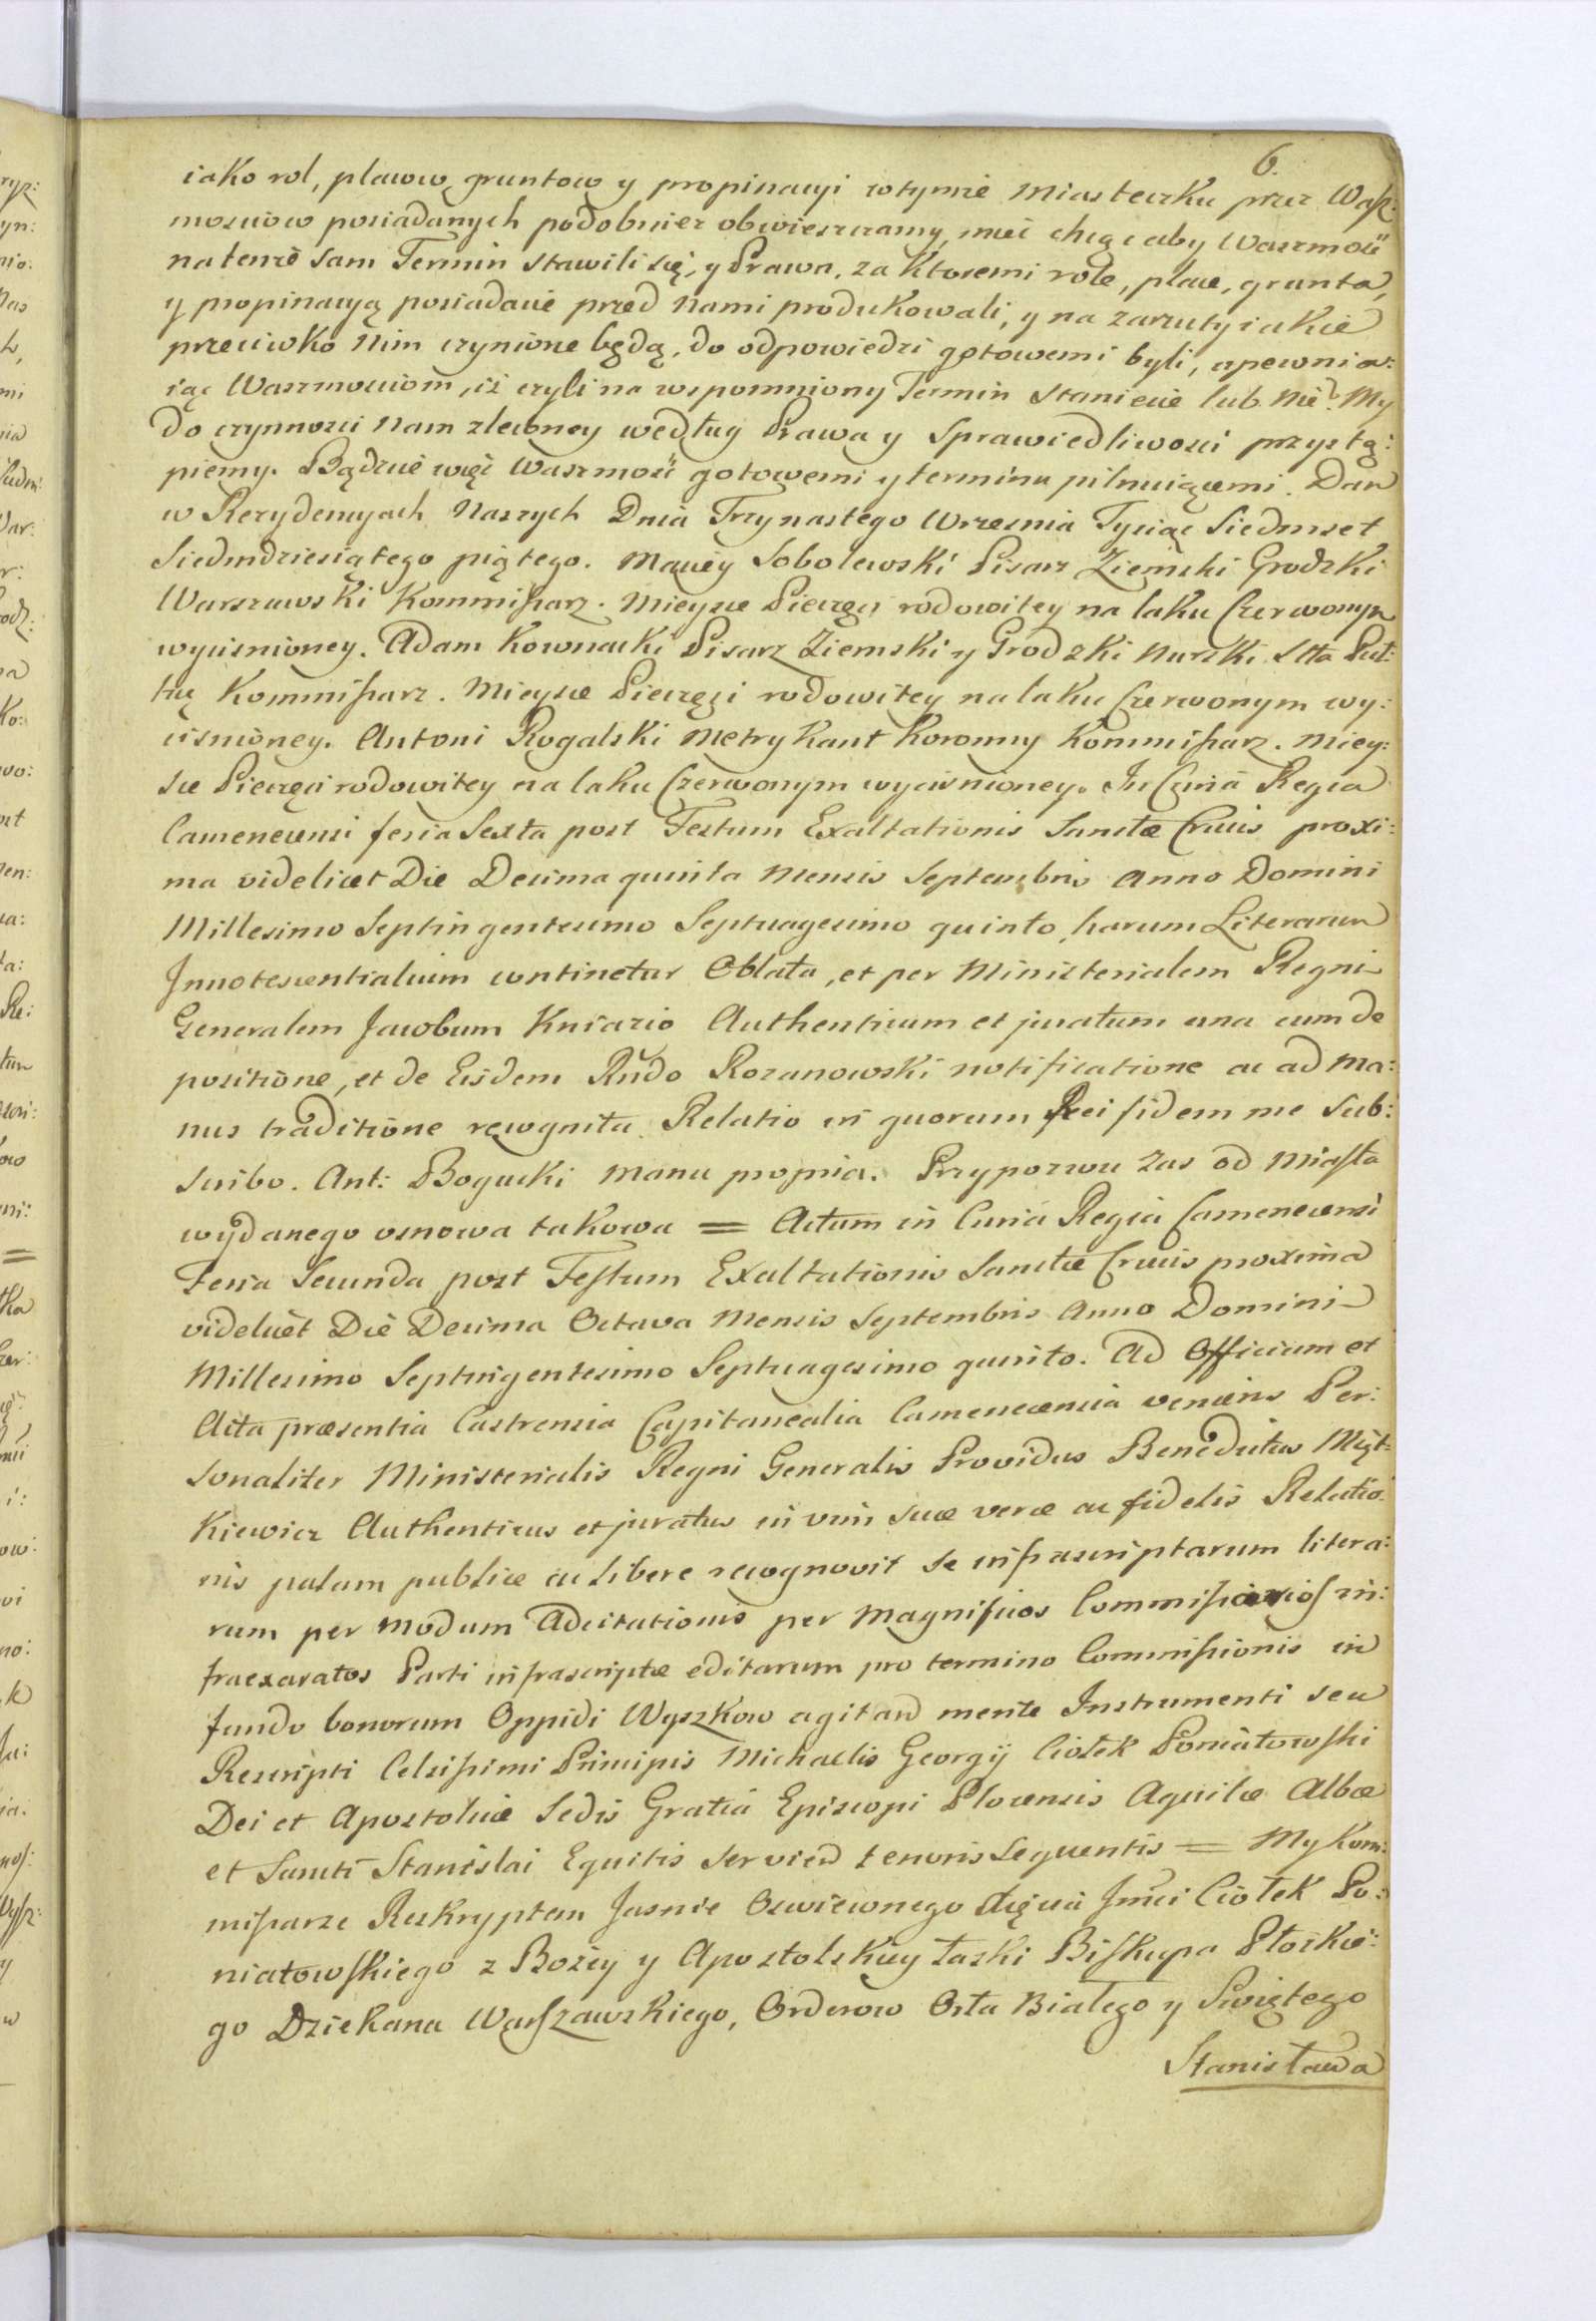 6.
iako rol, placow gruntow y propinacyi wtymze Miasteczku przez Wasz:
mosciow posiadanych podobniez obwieszczamy, miec chcąc aby Waszmość
natenze sam Termin stawili się, y Prawa, za ktoremi role, place, grunta,
y propinacyą posiadacie przed nami produkowali, y na zarzuty iakie
przeciwko Nim czynione będą, do odpowiedzi gotowemi byli, upewnia:
iąc Waszmosciom, iż czyli na wspomniony Termin staniecie lub nie? My
do czynnosci Nam zleconey według Prawa y Sprawiedliwosci przystą:
piemy. Bądzcie więc Waszmość gotowemi y terminu pilnuiącemi. Dan
w Rezydencyach Naszych Dnia Trzynastego Wrzesnia Tysiąc Siedmset
Siedmdziesiątego piątego. Maciey Sobolewski Pisarz Ziemski Grodzki
Warszawski Kommissarz. Mieysce Pieczęci rodowitey na laku Czerwonym
wycisnioney. Adam Kownacki Pisarz Ziemski y Grodzki Nurski Stta Puł:
tus: Kommissarz. Mieysce Pieczęci rodowitey na laku Czerwonym wy:
cisnioney. Antoni Rogalski Metrykant Koronny Kommissarz. Miey:
sce Pieczęci rodowitey na laku Czerwonym wycisnioney. In Curia Regia
Camenecensi feria Sexta post Festum Exaltationis Sanctæ Crucis proxi:
ma videlicet Die Decima quinta Mensis Septembris Anno Domini
Millesimo Septingentesimo Septuagesimo quinto, harum Literarum
Innotescentialium continetur Oblata, et per Ministerialem Regni
Generalem Jacobum Kniazio Authenticum et juratum una cum de
positione, et de Eisdem Rndo Rozanowski notificatione ac ad ma:
nus traditione recognita Relatio in quorum Rei fidem me Sub:
scribo. Ant: Bogucki manu propria. Przypozwu zas od Miasta
wydanego osnowa takowa = Actum in Curia Regia Camenecensi
Feria Secunda post Festum Exaltationis Sanctæ Crucis proxima
videlicet Die Decima Octava Mensis Septembris Anno Domini
Millesimo Septingentesimo Septuagesimo quinto. Ad Officium et
Acta præsentia Castrensia Capitanealia Camenecensia veniens Per:
sonaliter Ministerialis Regni Generalis Providus Benedictus
Kiewicz Authenticus et juratus in vim suæ veræ ac fidelis Relatio:
nis palam publice ac libere recognovit se infrascriptarum litera:
rum per modum Adcitationis per Magnificos Commissarios in:
fraexaratos Parti infrascriptæ editarum pro termino Commissionis in
fundo bonorum Oppidi Wyszkow agitand mente Instrumenti seu
Rescripti Celsissimi Principis Michaelis Georgij Ciołek Poniatowski
Dei et Apostolicæ Sedis Gratia Episcopi Plocensis Aquilæ Albæ
et Sancti Stanislai Equitis serviend tenoris sequentis = My Kom:
missarze Reskryptem Jasnie Oswieconego Xięcia Jmci Ciołek Po:
niatowskiego z Bożey y Apostolskiey łaski Biskupa Płockie:
go Dziekana Warszawskiego, Orderow Orła Białego y Swiętego
Stanisława